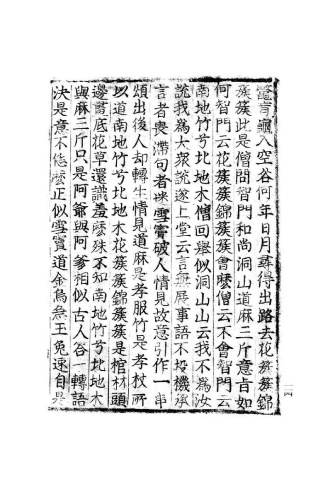 鼈盲龜入空谷何年日月尋得出路去花簇簇錦
簇簇此是僧問智門和尚洞山道麻三斤意旨如
何智門云花簇簇錦簇簇會麼僧云不會智門云
南地竹兮北地木僧回舉似洞山山云我不為汝
說我為大眾說遂上堂云言無展事語不投機承
言者喪滯句者迷雪竇破人情見故意引作一串
頌出後人却轉生情見道麻是孝服竹是孝杖所
以道南地竹兮北地木花簇簇錦簇簇是棺材頭
邊畫底花草還識羞麼殊不知南地竹兮北地木
與麻三斤只是阿爺與阿爹相似古人答一轉語
決是意不恁麼正似雪竇道金烏急玉兔速自是